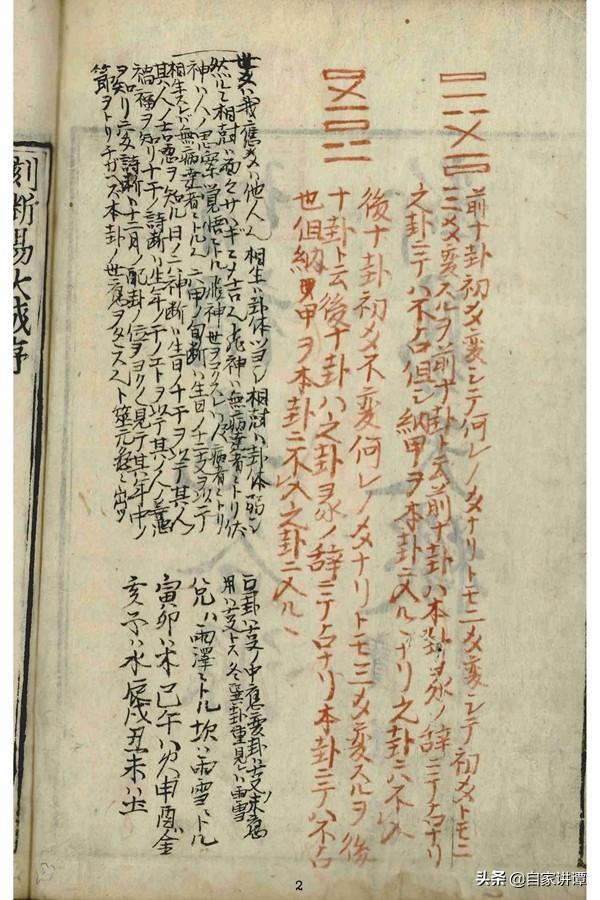 前十卦初爻変シテ何レノ爻ナリトモ二爻変シテ初爻トモニ
三爻変スルヲ前十卦ト云前十卦ハ本卦彖ノ辞ニテ占ナリ
之卦ニテハ不占但シ納甲ヲ本卦ニ入ルヽナリ之卦ニハ不入
後十卦初爻不変何レノ爻ナリトモ三爻変スルヲ後
十卦ト云後十卦ハ之卦ヲ彖ノ辞ニテ占ナリ本卦ニテハ不占
也但納甲ヲ本卦ニ不入之卦ニ入ルヽ
世爻ハ我應爻ハ他人 相生ハ卦体ツヨシ相尅ハ卦体弱シ
然レ𪜈相尅ハ 吉 飛神ハ無病 者トリ伏
神ハ人ノ思案覚悟トル 飛神世ヲ 病者トトリ
相生スレハ無病 者トル 六甲ノ旬断ハ生日ノ十二支ヲ以テ
其人ノ吉凶ヲ知ル日ノ二神断ハ生日ノ十干ヲ以テ其人
禍福ヲ知リ十干ノ詩断ハ生年ノエトヲ以テ其ノ人ノ善悪
ヲ知リ十二支ノ詩断ハ十二月ノ配卦ノ位ヲヨクヨク見テ其年中ノ
ヲトリチガヘズ本卦ノ世應ヲ
占卦ハ 中應変卦ハ 末應
用ハ 冬 卦重見ハ雨雪
兌ハ雨澤トトル坎ハ雨雪トトル
寅卯ハ木巳午ハ火申酉金
亥子ハ水辰戌丑未ハ土
刻断易大成序
2
头条 @自家讲谭